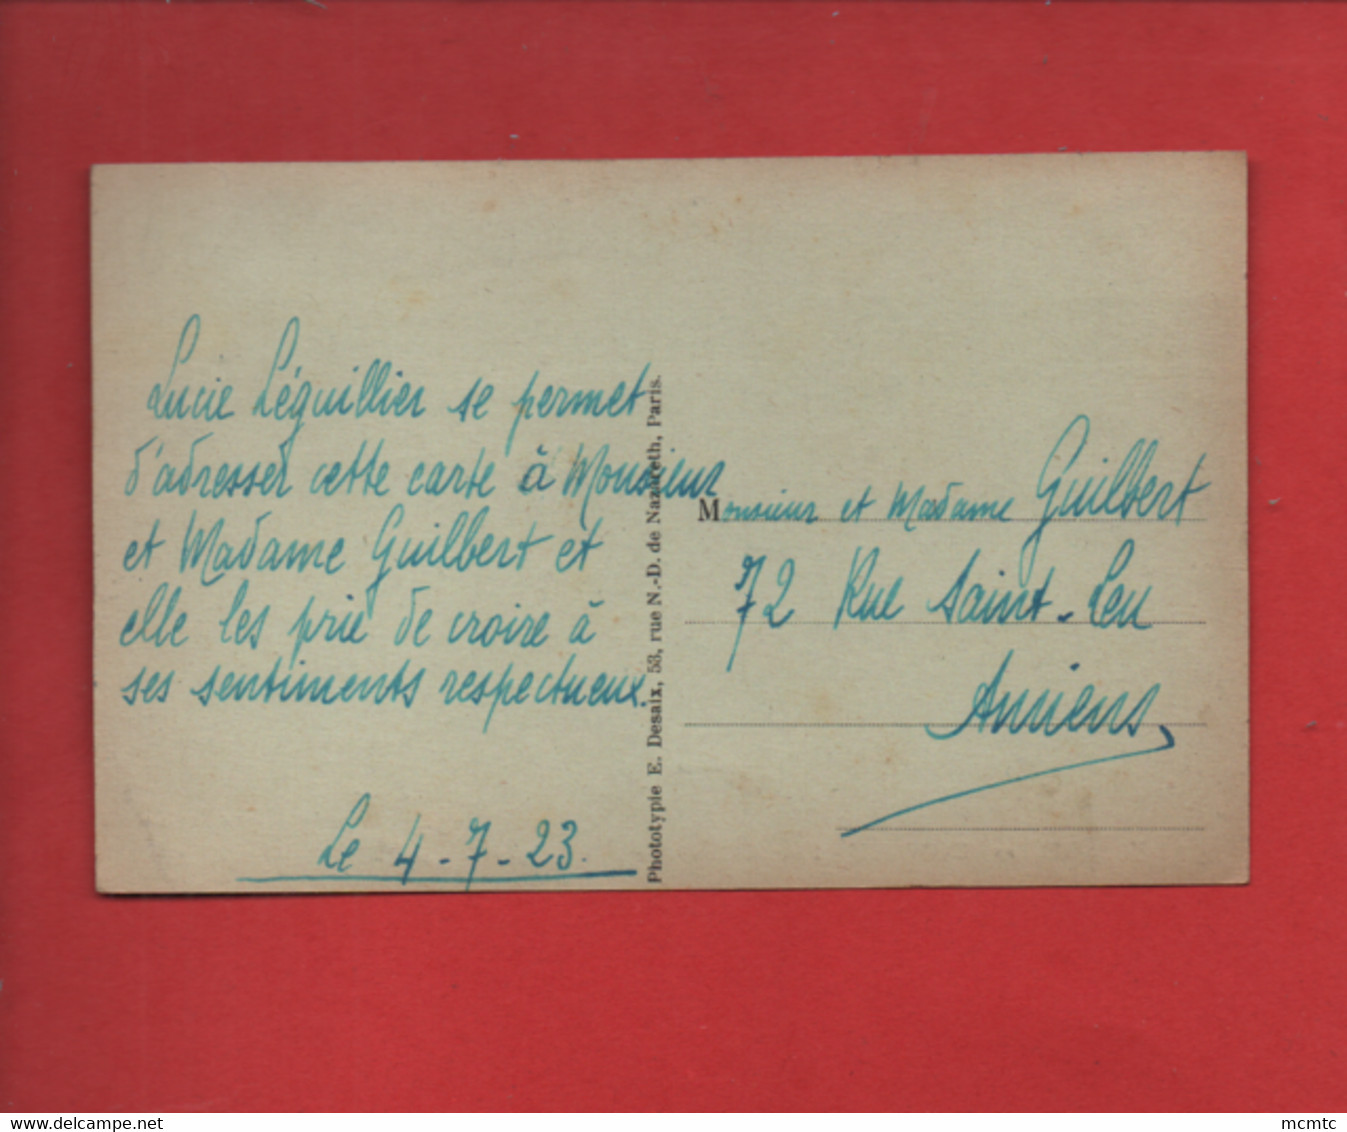 Lucie Léguillier se permet
d'adresser cette carte à Monsieur
et Madame Guilbert et
elle les prie de croire à
ses sentiments respectueux.
Le 4-7-23.
Phototypie E. Desaix, 53, rue N.-D. de Nazareth, Paris.
Monsieur et Madame Guilbert
72 Rue Saint-Leu
Amiens
www.delcampe.net
mcmtc